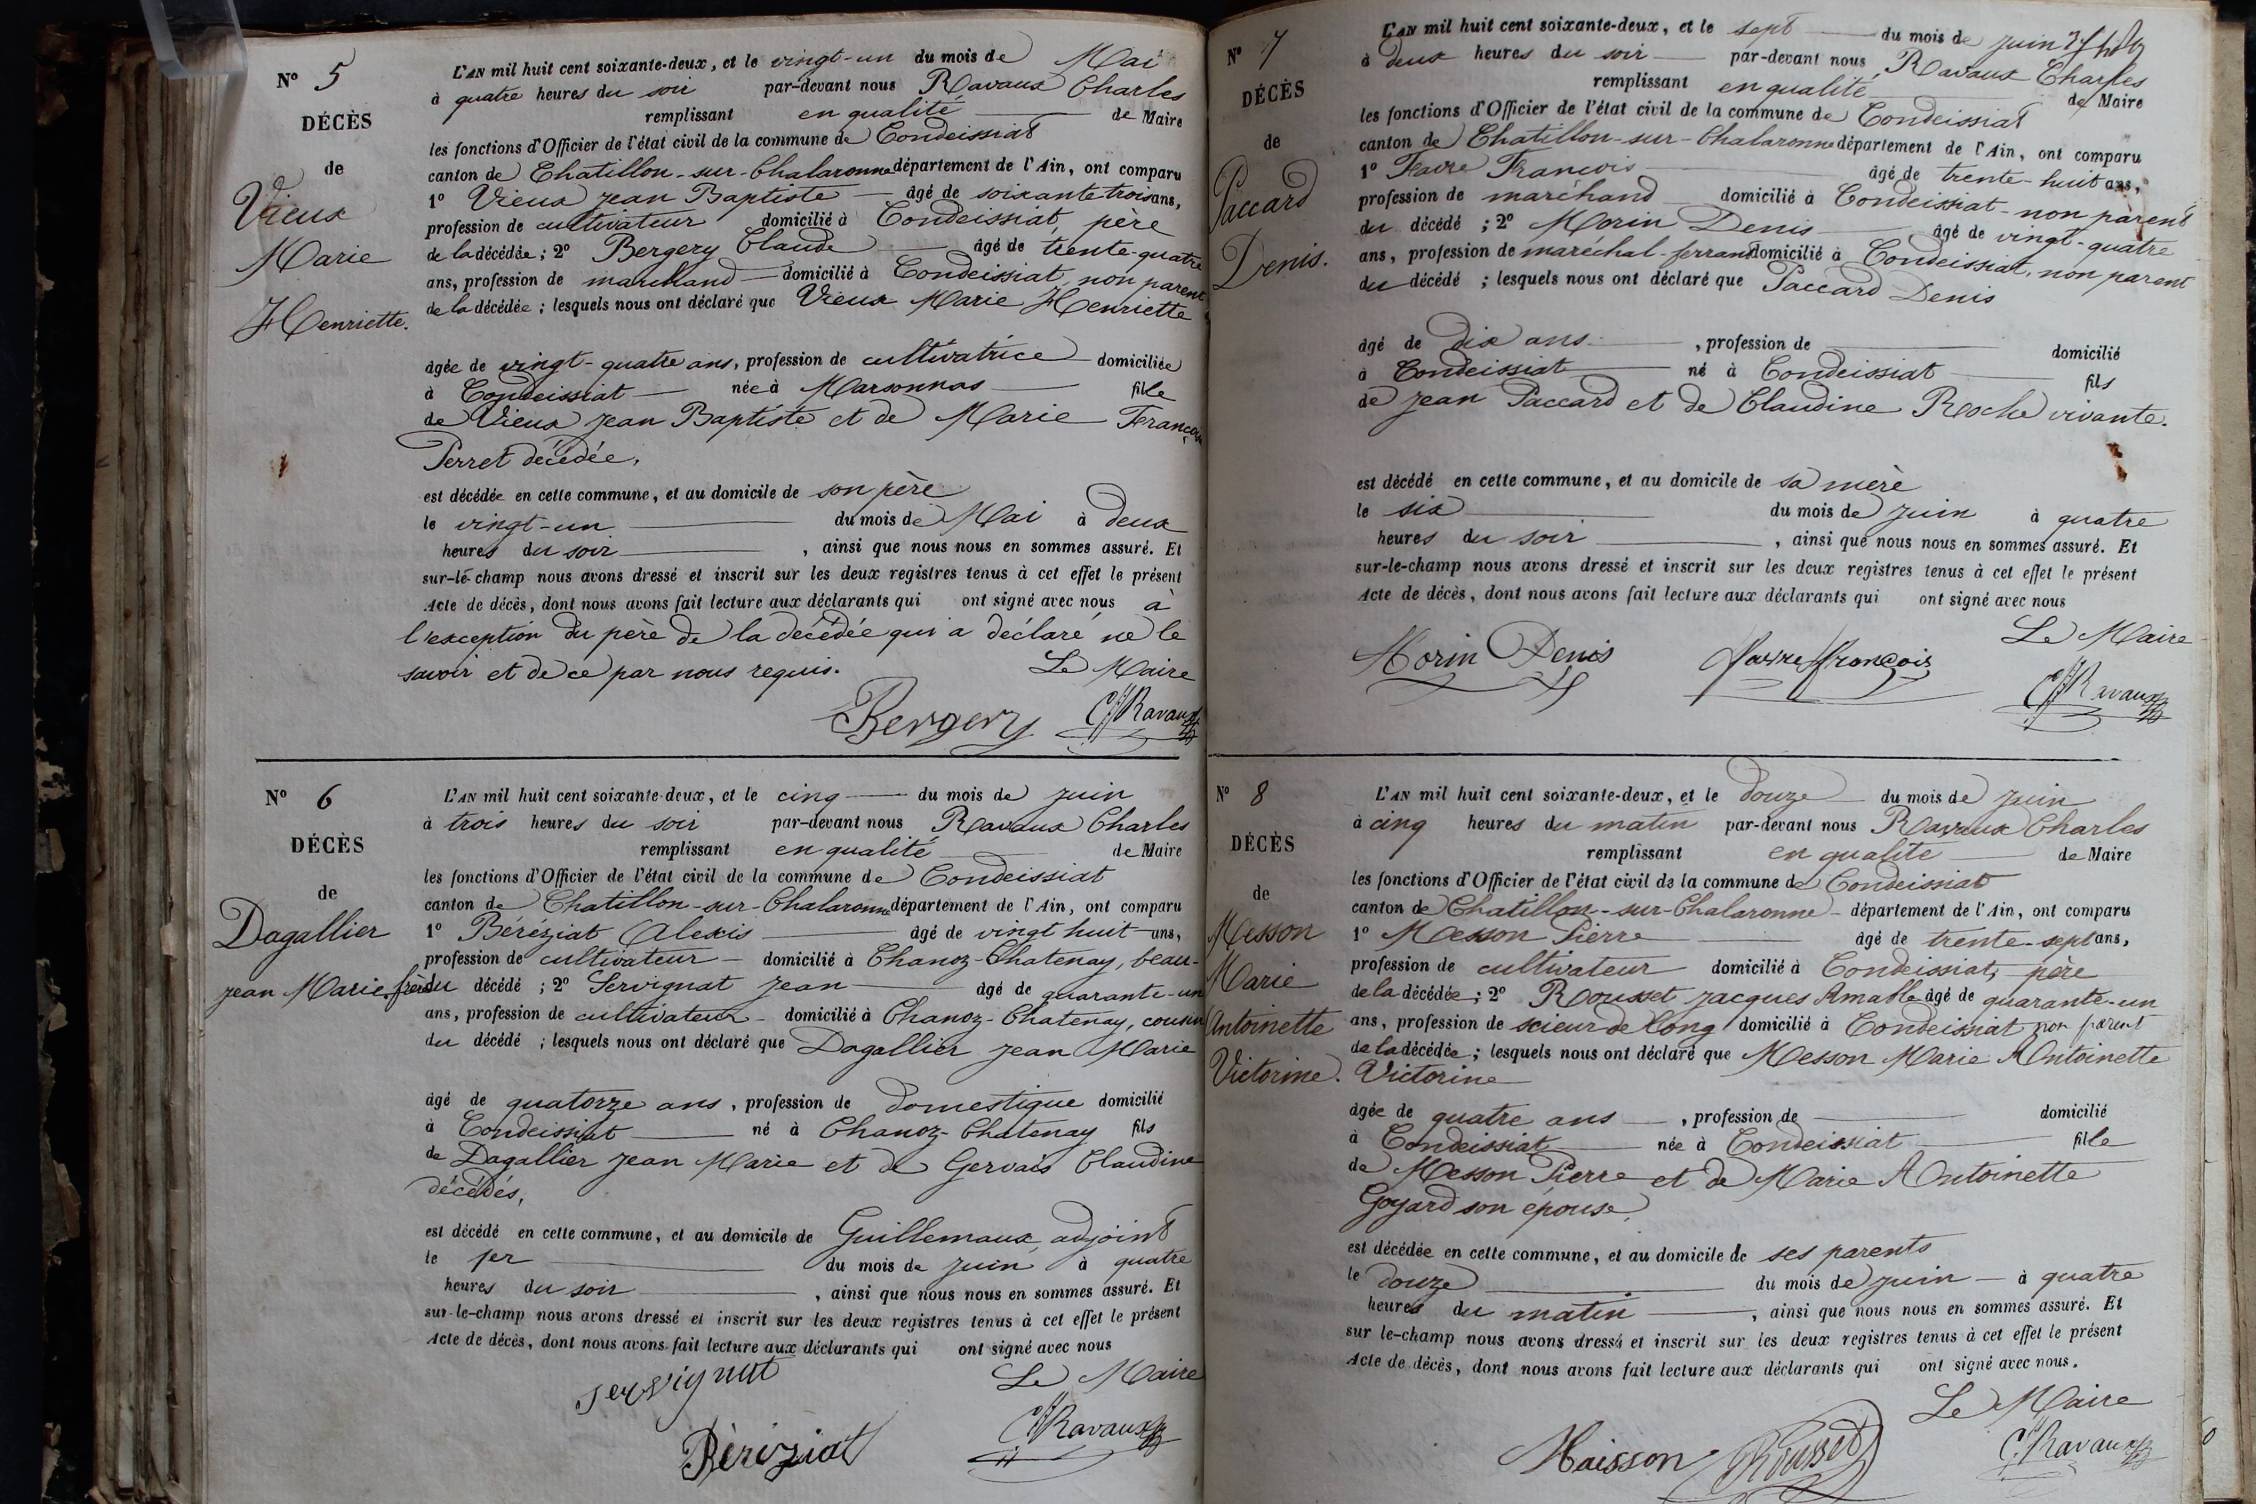 N° 5
DÉCÈS
de
Vieux
Marie
Henriette.
L'AN mil huit cent soixante-deux, et le vingt-un du mois de Mai
à quatre heures du soir par-devant nous Ravaux Charles
remplissant en qualité de Maire
les fonctions d'Officier de l'état civil de la commune de Condeissiat
canton de Chatillon-sur-Chalaronne département de l'Ain, ont comparu
1° Vieux Jean Baptiste âgé de soixante trois ans,
profession de cultivateur domicilié à Condeissiat, père
de la décédée ; 2° Bergery Claude âgé de trente-quatre
ans, profession de marchand domicilié à Condeissiat, non parent
de la décédée ; lesquels nous ont déclaré que Vieux Marie Henriette
âgée de vingt-quatre ans, profession de cultivatrice domiciliée
à Condeissiat née à Marsonnas fille
de Vieux Jean Baptiste et de Marie Françoise
Perret décédée,
est décédée en cette commune, et au domicile de son père
le vingt-un du mois de Mai à deux
heures du soir , ainsi que nous nous en sommes assuré. Et
sur-le-champ nous avons dressé et inscrit sur les deux registres tenus à cet effet le présent
Acte de décès, dont nous avons fait lecture aux déclarants qui ont signé avec nous à
l'exception du père de la décédée qui a déclaré ne le
savoir et de ce par nous requis. Le Maire
Bergery C. Ravaux
N° 6
DÉCÈS
de
Dagallier
Jean Marie.
L'AN mil huit cent soixante-deux, et le cinq du mois de Juin
à trois heures du soir par-devant nous Ravaux Charles
remplissant en qualité de Maire
les fonctions d'Officier de l'état civil de la commune de Condeissiat
canton de Chatillon-sur-Chalaronne département de l'Ain, ont comparu
1° Béréziat Alexis âgé de vingt huit ans,
profession de cultivateur domicilié à Chanoz-Chatenay, beau-
frère du décédé ; 2° Servignat Jean âgé de quarante-un
ans, profession de cultivateur domicilié à Chanoz-Chatenay, cousin
du décédé ; lesquels nous ont déclaré que Dagallier Jean Marie
âgé de quatorze ans, profession de domestique domicilié
à Condeissiat né à Chanoz-Chatenay fils
de Dagallier Jean Marie et de Gervais Claudine
décédés,
est décédé en cette commune, et au domicile de Guillemaux, adjoint
le 1er du mois de Juin à quatre
heures du soir , ainsi que nous nous en sommes assuré. Et
sur-le-champ nous avons dressé et inscrit sur les deux registres tenus à cet effet le présent
Acte de décès, dont nous avons fait lecture aux déclarants qui ont signé avec nous
Servignat Le Maire
Béréziat C. Ravaux
N° 7
DÉCÈS
de
Paccard
Denis.
L'AN mil huit cent soixante-deux, et le sept du mois de Juin
à deux heures du soir par-devant nous Ravaux Charles
remplissant en qualité de Maire
les fonctions d'Officier de l'état civil de la commune de Condeissiat
canton de Chatillon-sur-Chalaronne département de l'Ain, ont comparu
1° Favre François âgé de trente-huit ans,
profession de maréchand domicilié à Condeissiat non parent
du décédé ; 2° Morin Denis âgé de vingt-quatre
ans, profession de maréchal-ferrand domicilié à Condeissiat, non parent
du décédé ; lesquels nous ont déclaré que Paccard Denis
âgé de dix ans , profession de domicilié
à Condeissiat né à Condeissiat fils
de Jean Paccard et de Claudine Roche vivante.
est décédé en cette commune, et au domicile de sa mère
le six du mois de Juin à quatre
heures du soir , ainsi que nous nous en sommes assuré. Et
sur-le-champ nous avons dressé et inscrit sur les deux registres tenus à cet effet le présent
Acte de décès, dont nous avons fait lecture aux déclarants qui ont signé avec nous
Le Maire
Morin Denis Favre françois C. Ravaux
N° 8
DÉCÈS
de
Messon
Marie
Antoinette
Victorine.
L'AN mil huit cent soixante-deux, et le douze du mois de Juin
à cinq heures du matin par-devant nous Ravaux Charles
remplissant en qualité de Maire
les fonctions d'Officier de l'état civil de la commune de Condeissiat
canton de Chatillon-sur-Chalaronne département de l'Ain, ont comparu
1° Messon Pierre âgé de trente-sept ans,
profession de cultivateur domicilié à Condeissiat, père
de la décédée ; 2° Rousset Jacques Amable âgé de quarante-un
ans, profession de scieur de long domicilié à Condeissiat non parent
de la décédée ; lesquels nous ont déclaré que Messon Marie Antoinette
Victorine
âgée de quatre ans , profession de domicilié
à Condeissiat née à Condeissiat fille
de Messon Pierre et de Marie Antoinette
Goyard son épouse,
est décédée en cette commune, et au domicile de ses parents
le douze du mois de Juin à quatre
heures du matin , ainsi que nous nous en sommes assuré. Et
sur le-champ nous avons dressé et inscrit sur les deux registres tenus à cet effet le présent
Acte de décès, dont nous avons fait lecture aux déclarants qui ont signé avec nous.
Le Maire
Maisson Rousset C. Ravaux